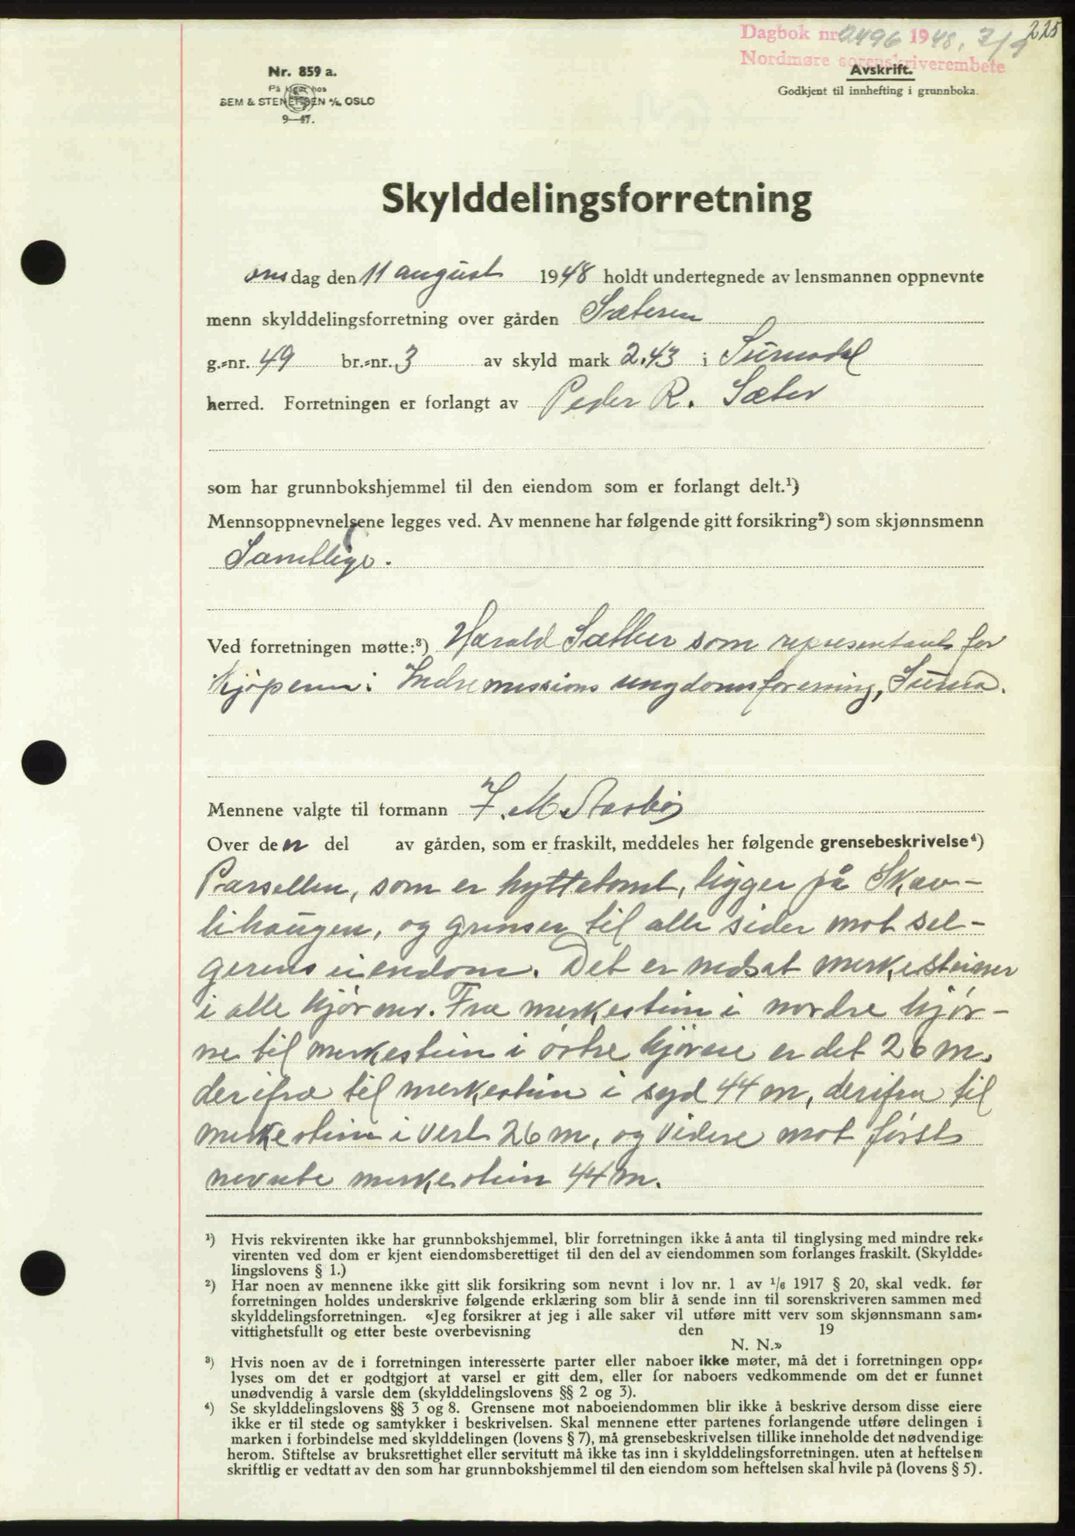 225
Dagbok nr. 2496 1948, 7/9
Nordmøre sorenskriverembete
Nr. 859 a.
På lager hos
SEM & STENERSEN A/S, OSLO
9—47.
Avskrift.
Godkjent til innhefting i grunnboka.
Skylddelingsforretning
onsdag den 11 august 1948 holdt undertegnede av lensmannen oppnevnte
menn skylddelingsforretning over gården Sæteren
g.-nr. 49 br.-nr. 3 av skyld mark 2.43 i Surnadal
herred. Forretningen er forlangt av Peder R. Sæter
som har grunnbokshjemmel til den eiendom som er forlangt delt.¹)
Mennsoppnevnelsene legges ved. Av mennene har følgende gitt forsikring²) som skjønnsmenn
Samtlige.
Ved forretningen møtte:³) Harald Sæther som representant for
kjøperen: Indremissions ungdomsforening, Surna.
Mennene valgte til formann
Over den del av gården, som er fraskilt, meddeles her følgende grensebeskrivelse⁴)
Parsellen, som er hyttetomt, ligger på Skav-
lihaugen, og grenser til alle sider mot sel-
gerens eiendom. Det er nedsat merkesteiner
i alle hjørner. Fra merkestein i nordre hjør-
ne til merkestein i østre hjørne er det 26 m.
derifra til merkestein i syd 44 m, derifra til
merkestein i vest 26 m, og videre mot først
nevnte merkestein 44 m.
¹) Hvis rekvirenten ikke har grunnbokshjemmel, blir forretningen ikke å anta til tinglysing med mindre rek-
virenten ved dom er kjent eiendomsberettiget til den del av eiendommen som forlanges fraskilt. (Skyldde-
lingslovens § 1.)
²) Har noen av mennene ikke gitt slik forsikring som nevnt i lov nr. 1 av 1/6 1917 § 20, skal vedk. før
forretningen holdes underskrive følgende erklæring som blir å sende inn til sorenskriveren sammen med
skylddelingsforretningen. «Jeg forsikrer at jeg i alle saker vil utføre mitt verv som skjønnsmann sam-
vittighetsfullt og etter beste overbevisning den 19
N. N.»
³) Hvis noen av de i forretningen interesserte parter eller naboer ikke møter, må det i forretningen opp-
lyses om det er godtgjort at varsel er gitt dem, eller for naboers vedkommende om det er funnet
unødvendig å varsle dem (skylddelingslovens §§ 2 og 3).
⁴) Se skylddelingslovens §§ 3 og 8. Grensene mot naboeiendommen blir ikke å beskrive dersom disse eiere
ikke er til stede og samtykker i beskrivelsen. Skal mennene etter partenes forlangende utføre delingen i
marken i forbindelse med skylddelingen (lovens § 7), må grensebeskrivelsen tillike inneholde det nødvendige
herom. Stiftelse av bruksrettighet eller servitutt må ikke tas inn i skylddelingsforretningen, uten at heftelsen
skriftlig er vedtatt av den som har grunnbokshjemmel til den eiendom som heftelsen skal hvile på (lovens § 5).